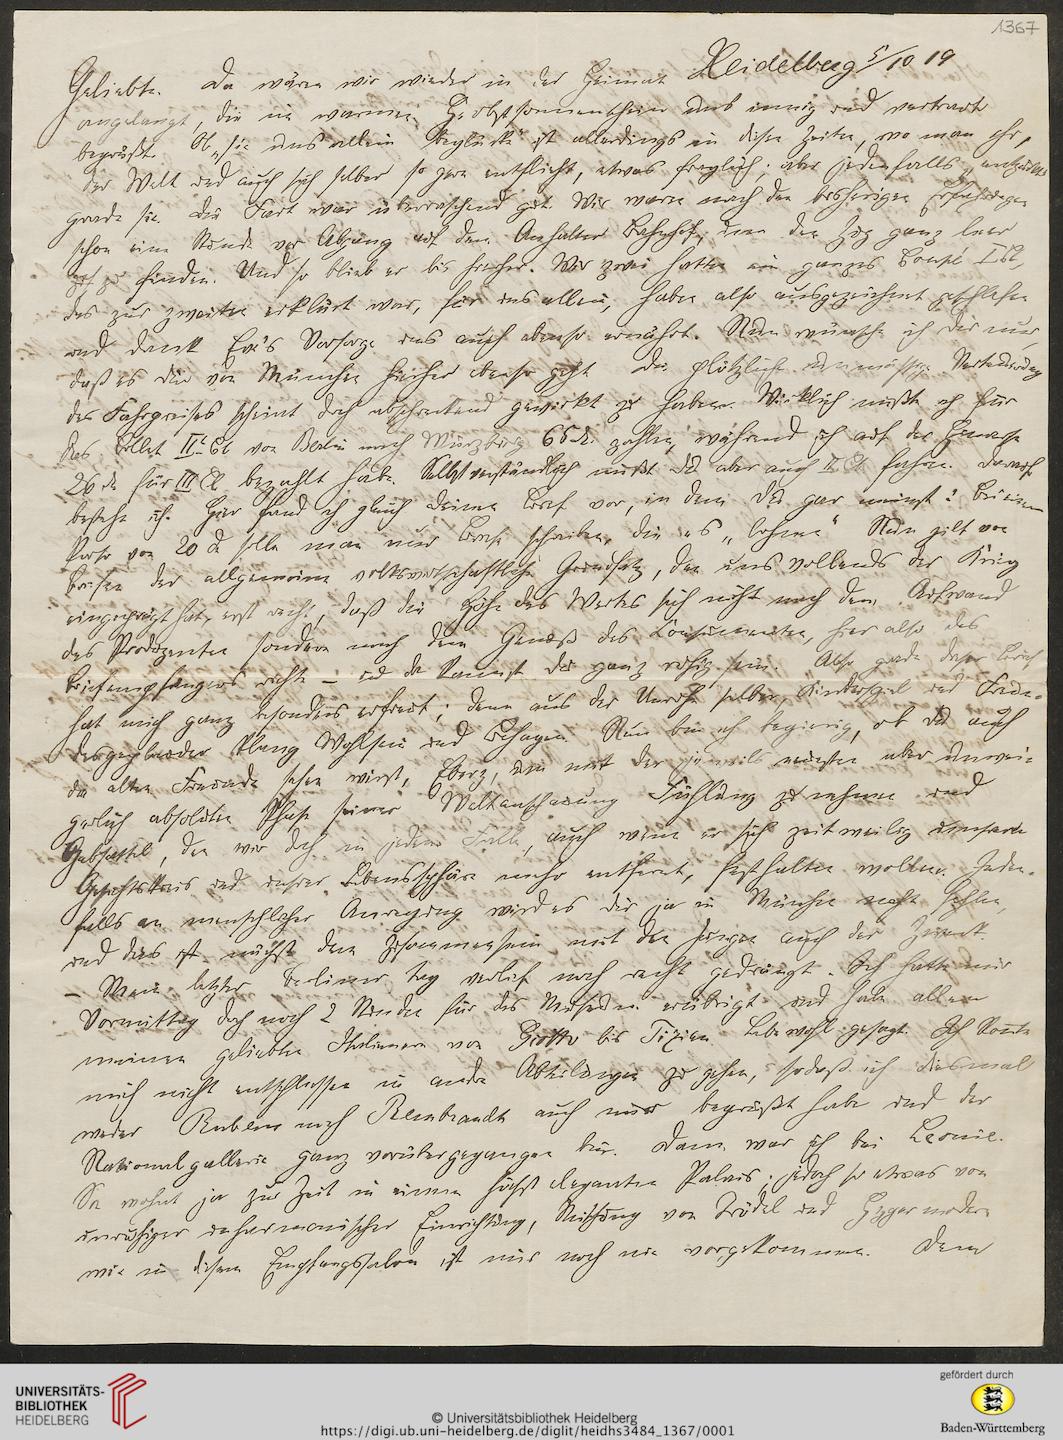 1367
Heidelberg 5/10 19
Geliebte. Da wären wir wieder in der Heimat
angelangt, die in warmem Herbstsonnenschein uns innig und vertraut
begrüßte. Ob „sie uns allein beglückt" ist allerdings in diesen Zeiten, wo man ihr,
der Welt und auch sich selber so gern entflieht, etwas fraglich; aber jedenfalls
grade sie. Die Fart war überraschend gut. Wir waren nach den bisherigen Erfahrungen
schon eine Stunde vor Abgang auf dem Anhalter Bahnhof, um den Zug ganz leer
zu finden. Und so blieb er bis hierher. Wir zwei hatten ein ganzes Coupé I Cl,
das zur zweiten erklärt war, für uns allein, haben also ausgezeichnet geschlafen
und dank Eve's Vorsorge uns auch ebenso ernährt. Nun wünsche ich Dir nur,
daß es Dir von München hierher ebenso geht. Die plötzliche Verteuerung
des Fahrpreises scheint doch abschreckend gewirkt zu haben. Wirklich mußte ich für
das Billet II. Cl von Berlin nach Würzburg 66 M. zahlen, während ich auf der Hinreise
26 M für III Cl bezahlt habe. Selbstverständlich mußt Du aber auch II Cl fahren. Darauf
bestehe ich. Hier fand ich gleich Deinen Brief vor, in dem Du gar meinst: bei einem
Porto von 20 d solle man nur Briefe schreiben, die es „lohnen". Nun gilt von
Briefen der allgemeine volkswirtschaftliche Grundsatz, den uns vollends der Krieg
eingeprägt hat, erst recht, daß die Höhe des Wertes sich nicht nach dem Aufwand
des Produzenten sondern nach dem Genuß des Konsumenten, hier also des
Briefempfängers richte – und da kannst Du ganz ruhig sein. Also grade dieser Brief
hat mich ganz besonders erfreut; denn aus der Unruhe selber, Kinderspiel und
Klang Wohlsein und Behagen. Nun bin ich begierig, ob Du auch
die alten Freunde sehen wirst, Eberz, um mit der jeweils neuesten aber
absoluten Phase seiner Weltanschauung Fühlung zu nehmen und
Gebsattel, den wir doch in jedem Falle, auch wenn er sich zeitweilig unserem
Gesichtskreis und unserer Lebenssphäre mehr entfernt, festhalten wollen. Jeden-
falls an menschlicher Anregung wird es Dir ja in München nicht fehlen,
und dies ist nächst dem Zusammensein mit den Jungen auch der Zweck.
– Mein letzter Berliner Tag verlief noch recht gedrängt. Ich hatte mir
Vormittag doch noch 2 Stunden für das Museum erübrigt und habe allen
meinen geliebten Italienern von Giotto bis Tizian Lebewohl gesagt. Ich konnte
mich nicht entschließen in andre Abteilungen zu gehen, sodaß ich diesmal
weder Rubens noch Rembrandt auch nur begrüßt habe und der
Nationalgallerie ganz vorübergegangen bin. Dann war ich bei Leonie.
Sie wohnt ja zur Zeit in einem höchst eleganten Palais; jedoch so etwas von
unruhiger unharmonischer Einrichtung, Mischung von Trödel und
wie in diesem Empfangssalon ist mir noch nie vorgekommen. Denn
UNIVERSITÄTS-
BIBLIOTHEK
HEIDELBERG
© Universitätsbibliothek Heidelberg
https://digi.ub.uni-heidelberg.de/diglit/heidhs3484_1367/0001
gefördert durch
Baden-Württemberg